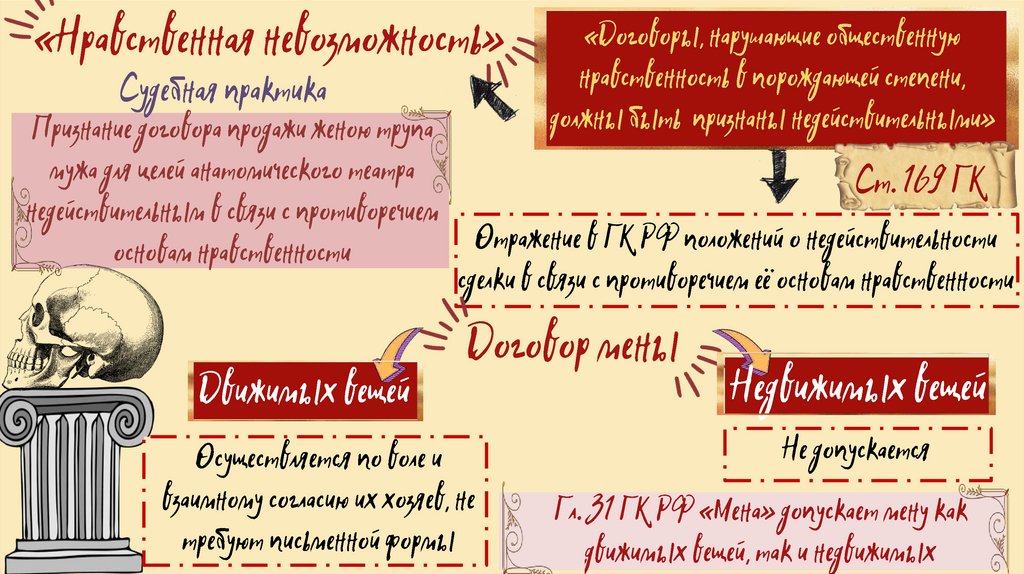 «Нравственная невозможность»
Судебная практика
Признание договора продажи женою трупа
мужа для целей анатомического театра
недействительным в связи с противоречием
основам нравственности
«Договоры, нарушающие общественную
нравственность в порождающей степени,
должны быть признаны недействительными»
Ст. 169 ГК
Отражение в ГК РФ положений о недействительности
сделки в связи с противоречием её основам нравственности
Договор мены
Движимых вещей
Осуществляется по воле и
взаимному согласию их хозяев, не
требуют письменной формы
Недвижимых вещей
Не допускается
Гл. 31 ГК РФ «Мена» допускает мену как
движимых вещей, так и недвижимых